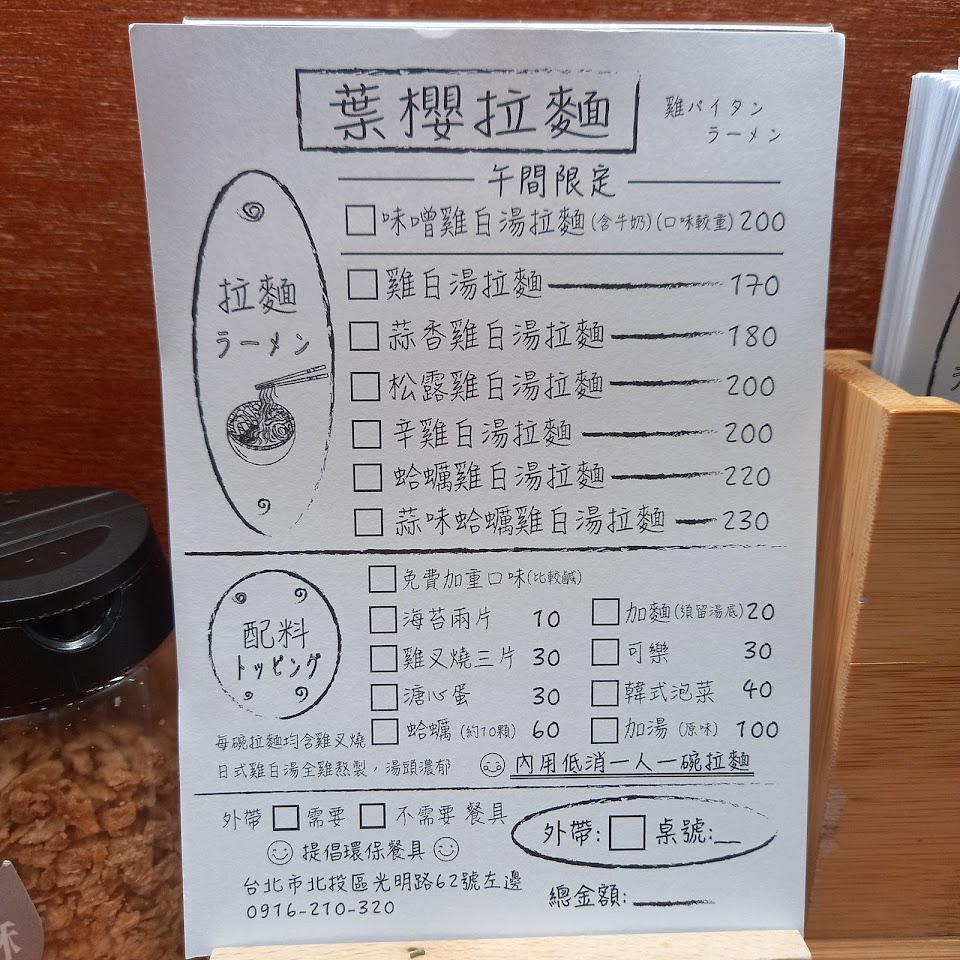 葉櫻拉麵
雞パイタン
ラーメン
午間限定
味噌雞白湯拉麵(含牛奶)(口味較重) 200
拉麵
ラーメン
雞白湯拉麵 170
蒜香雞白湯拉麵 180
松露雞白湯拉麵 200
辛雞白湯拉麵 200
蛤蠣雞白湯拉麵 220
蒜味蛤蠣雞白湯拉麵 230
配料
トッピング
免費加重口味(比較鹹)
海苔兩片 10 加麵(須留湯底) 20
雞叉燒三片 30 可樂 30
溏心蛋 30 韓式泡菜 40
蛤蠣(約10顆) 60 加湯(原味) 100
每碗拉麵均含雞叉燒
日式雞白湯全雞熬製,湯頭濃郁
內用低消一人一碗拉麵
外帶 需要 不需要 餐具
提倡環保餐具
外帶: 桌號:
台北市北投區光明路62號左邊
0916-210-320
總金額:
酥